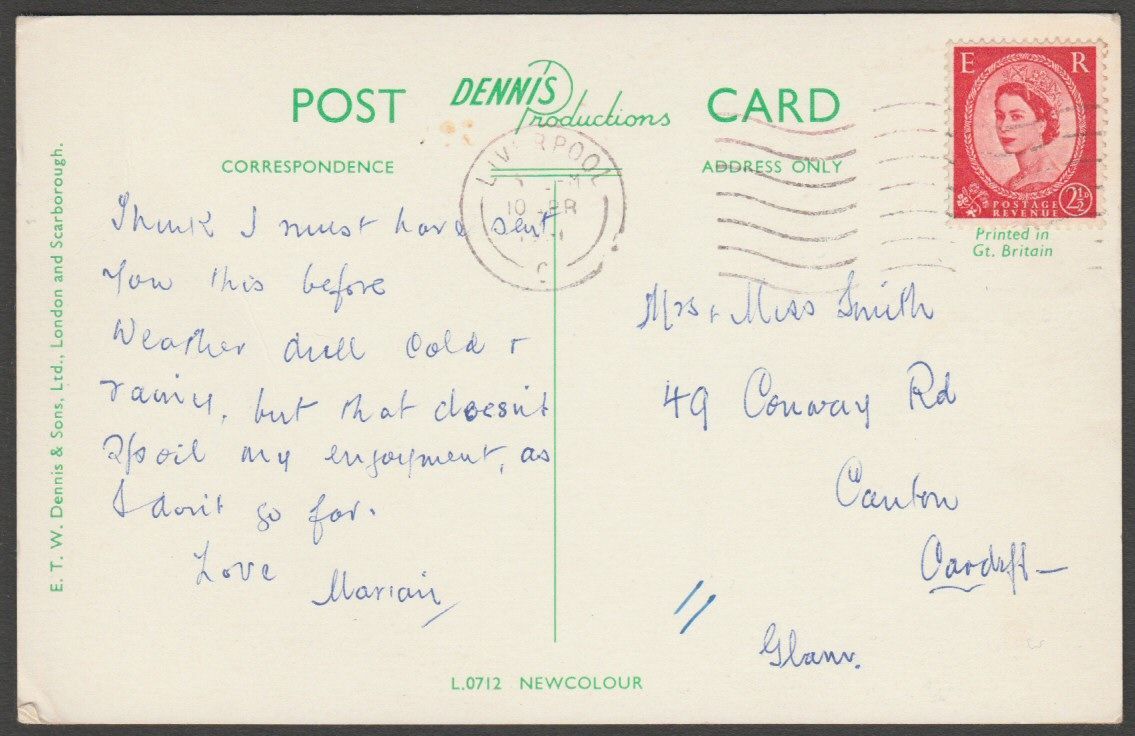 POST CARD
DENNIS Productions
CORRESPONDENCE
ADDRESS ONLY
E. T. W. Dennis & Sons, Ltd., London and Scarborough.
LIVERPOOL
10 APR
C
E R
POSTAGE REVENUE 2½D
Printed in
Gt. Britain
Think I must have sent
You this before
Weather dull cold +
rainy, but that doesn't
spoil my enjoyment, as
I don't go far.
Love
Marian
Mrs + Miss Smith
49 Conway Rd
Canton
Cardiff
Glam.
L.0712 NEWCOLOUR